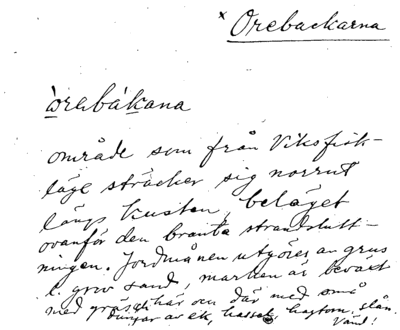 x Orebackarna
òrebákana
område som från Viksfisk-
läge sträcker sig norrut
längs kusten, beläget
ovanför den branta strandslutt-
ningen. Jordmånen utgöres av grus
l. grov sand, marken är beväxt
med gräs och här och där med små
dungar av ek, hassel, hagtorn, slån.
Vänd!